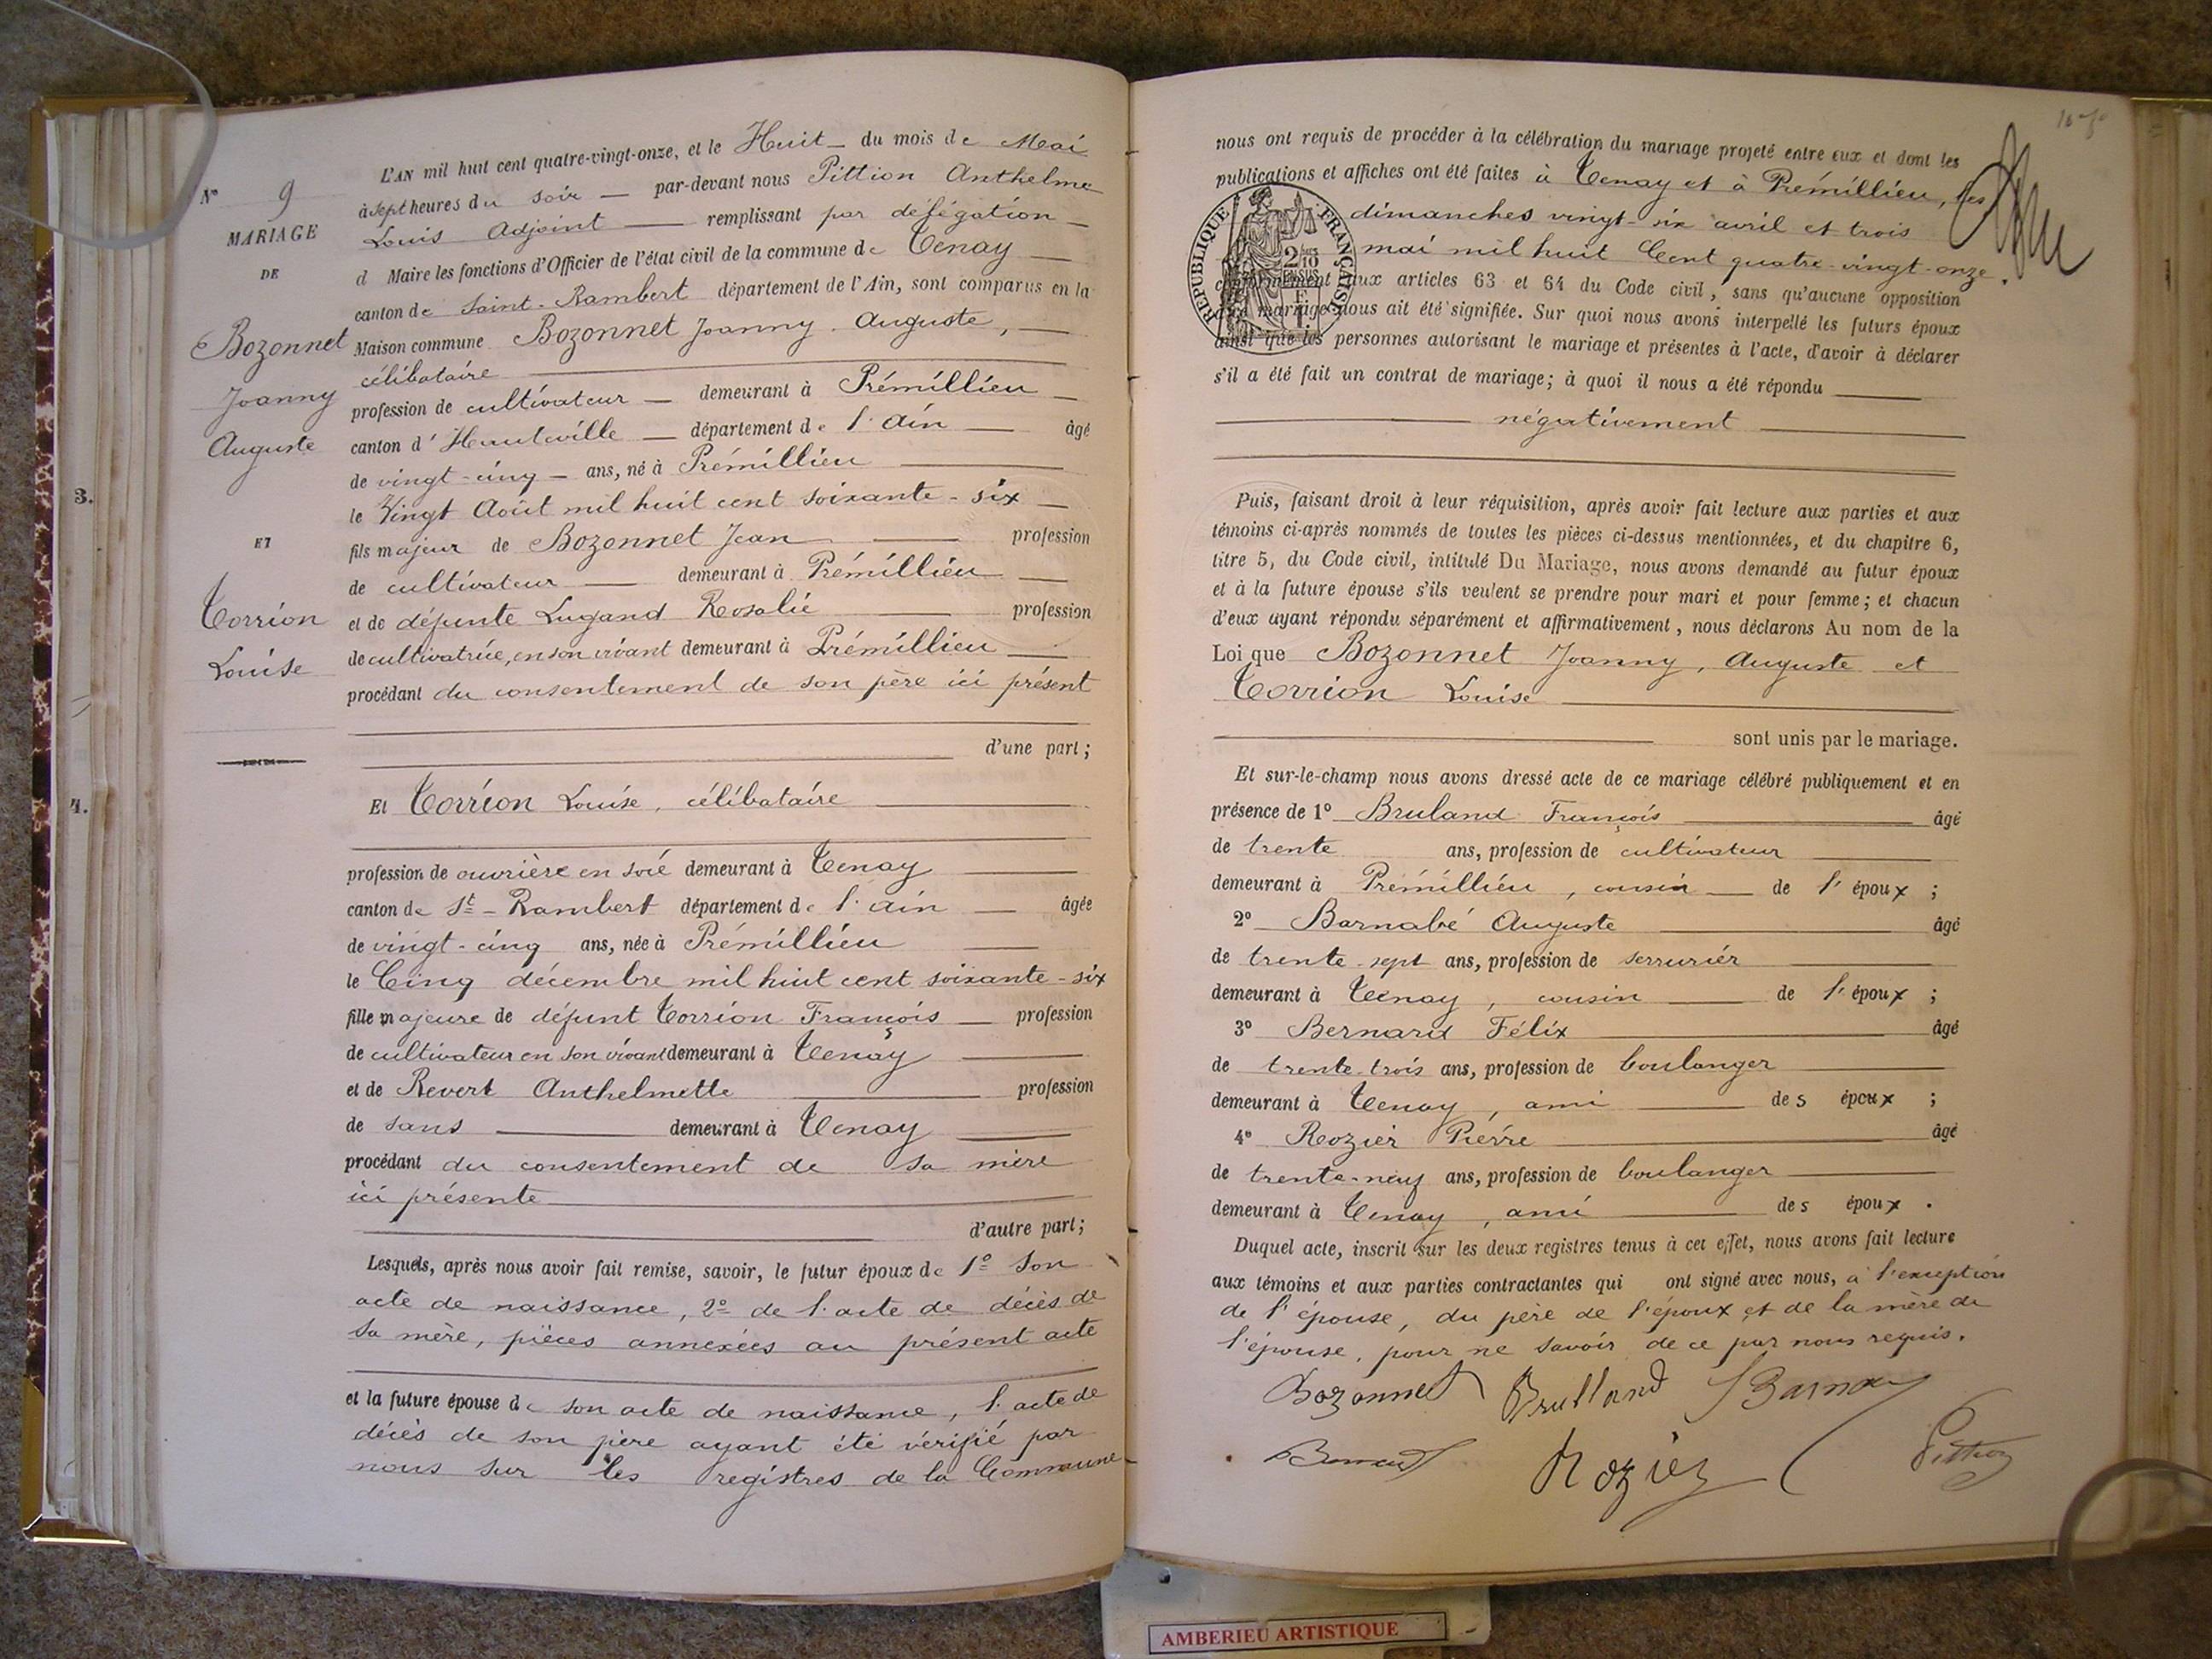 N° 9
MARIAGE
DE
Bozonnet
Joanny
Auguste
ET
Torrion
Louise
3.
4.
L'AN mil huit cent quatre-vingt-onze, et le Huit du mois de Mai
à sept heures du soir par-devant nous Pittion Anthelme
Louis Adjoint remplissant par délégation
d Maire les fonctions d'Officier de l'état civil de la commune de Tenay
canton de Saint-Rambert département de l'Ain, sont comparus en la
Maison commune Bozonnet Joanny Auguste,
célibataire
profession de cultivateur demeurant à Prémillieu
canton d'Hauteville département de l'Ain âgé
de vingt-cinq ans, né à Prémillieu
le Vingt Août mil huit cent soixante-six
fils majeur de Bozonnet Jean profession
de cultivateur demeurant à Prémillieu
et de défunte Lugand Rosalie profession
de cultivatrice, en son vivant demeurant à Prémillieu
procédant du consentement de son père ici présent
d'une part;
Et Torrion Louise, célibataire
profession de ouvrière en soie demeurant à Tenay
canton de St-Rambert département de l'ain âgée
de vingt-cinq ans, née à Prémillieu
le Cinq décembre mil huit cent soixante-six
fille majeure de défunt Torrion François profession
de cultivateur en son vivant demeurant à Tenay
et de Revert Anthelmette profession
de sans demeurant à Tenay
procédant du consentement de sa mère
ici présente
d'autre part;
Lesquels, après nous avoir fait remise, savoir, le futur époux de 1° Son
acte de naissance, 2° de l'acte de décès de
sa mère, pièces annexées au présent acte
et la future épouse de son acte de naissance, l'acte de
décès de son père ayant été vérifié par
nous sur les registres de la Commune
nous ont requis de procéder à la célébration du mariage projeté entre eux et dont les
publications et affiches ont été faites à Tenay et à Prémillieu, les
dimanches vingt-six avril et trois
mai mil huit Cent quatre-vingt-onze.
RÉPUBLIQUE FRANÇAISE
2/10 EN SUS
conformément aux articles 63 et 64 du Code civil, sans qu'aucune opposition
dud mariage nous ait été signifiée. Sur quoi nous avons interpellé les futurs époux
ainsi que les personnes autorisant le mariage et présentes à l'acte, d'avoir à déclarer
s'il a été fait un contrat de mariage; à quoi il nous a été répondu
négativement
Puis, faisant droit à leur réquisition, après avoir fait lecture aux parties et aux
témoins ci-après nommés de toutes les pièces ci-dessus mentionnées, et du chapitre 6,
titre 5, du Code civil, intitulé Du Mariage, nous avons demandé au futur époux
et à la future épouse s'ils veulent se prendre pour mari et pour femme; et chacun
d'eux ayant répondu séparément et affirmativement, nous déclarons Au nom de la
Loi que Bozonnet Joanny, Auguste et
Torrion Louise
sont unis par le mariage.
Et sur-le-champ nous avons dressé acte de ce mariage célébré publiquement et en
présence de 1° Bruland François âgé
de trente ans, profession de cultivateur
demeurant à Prémillieu, cousin de l'époux;
2° Barnabé Auguste âgé
de trente-sept ans, profession de serrurier
demeurant à Tenay, cousin de l'époux;
3° Bernard Félix âgé
de trente-trois ans, profession de boulanger
demeurant à Tenay, ami des époux;
4° Rozier Pierre âgé
de trente-neuf ans, profession de boulanger
demeurant à Tenay, ami des époux.
Duquel acte, inscrit sur les deux registres tenus à cet effet, nous avons fait lecture
aux témoins et aux parties contractantes qui ont signé avec nous, à l'exception
de l'épouse, du père de l'époux et de la mère de
l'épouse, pour ne savoir de ce par nous requis.
Bozonnet Brulland
Bernard Rozier Pittion
AMBERIEU ARTISTIQUE